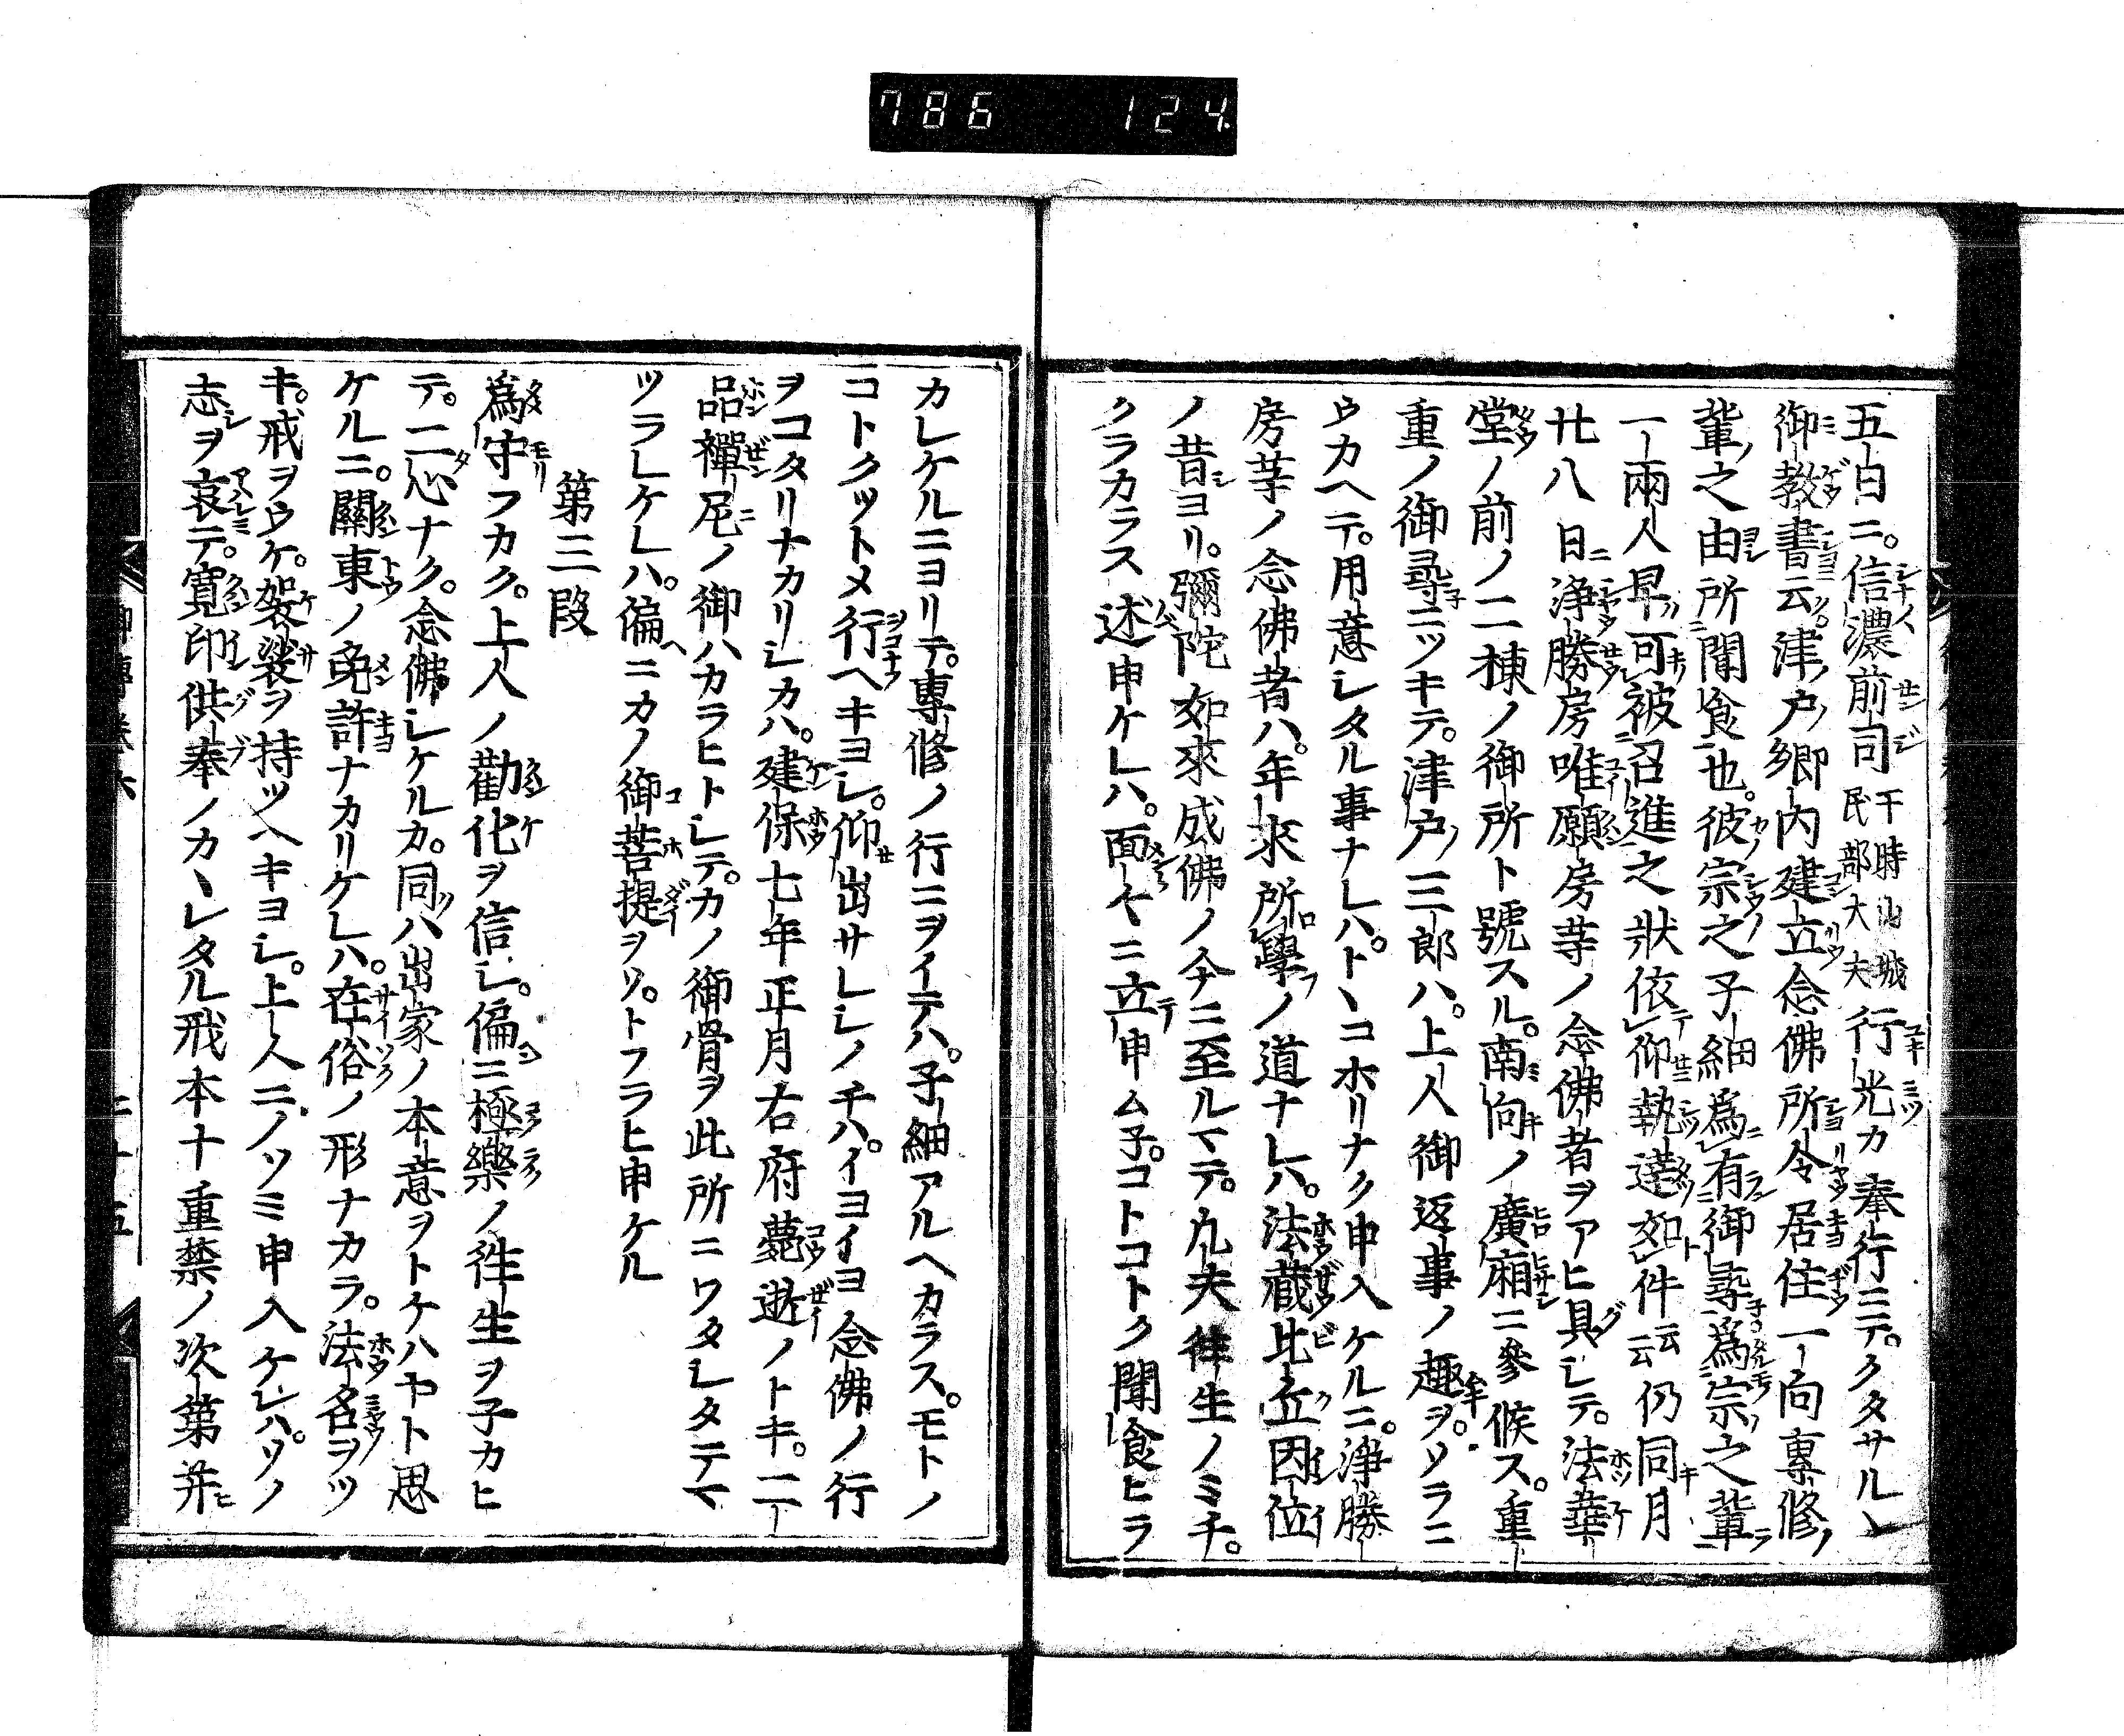 786 124
五日ニ。信濃前司 于時山城民部大夫 行光カ奉行ニテ。クタサルヽ
御教書云。津戸郷内建立念佛所令居住一向專修
輩之由所聞食也。彼宗之子細爲有御尋爲宗之輩
一兩人早可被召進之狀依仰執達如件云云仍同月
廿八日淨勝房唯願房等ノ念佛者ヲアヒ具シテ。法華
堂ノ前ノ二棟ノ御所ト號スル。南向ノ廣廂ニ參候ス。重
重ノ御尋ニツキテ。津戸三郎ハ。上人御返事ノ趣ヲ。ソラニ
ウカヘテ。用意シタル事ナレハ。トヽコホリナク申入ケルニ。淨勝
房等ノ念佛者ハ。年來所學ノ道ナレハ。法藏比丘因位
ノ昔ヨリ。彌陀如來成佛ノ今ニ至ルマテ。凡夫往生ノミチ。
クラカラス述申ケレハ。面々ニ立申ム子。コトコトク聞食ヒラ
カレケルニヨリテ。專修ノ行ニヲイテハ。子細アルヘカラス。モトノ
コトクツトメ行ヘキヨシ。仰出サレシノチハ。イヨイヨ念佛ノ行
ヲコタリナカリシカハ。建保七年正月右府薨逝ノトキ。二
品禪尼ノ御ハカラヒトシテ。カノ御骨ヲ此所ニワタシタテマ
ツラレケレハ。偏ニカノ御菩提ヲソ。トフラヒ申ケル
第三段
爲守フカク。上人ノ勸化ヲ信シ。偏ニ極樂ノ往生ヲ子カヒ
テ。二心ナク。念佛シケルカ。同ハ出家ノ本意ヲトケハヤト思
ケルニ。關東ノ免許ナカリケレハ。在俗ノ形ナカラ。法名ヲツ
キ。戒ヲウケ。袈裟ヲ持ツヘキヨシ。上人ニノソミ申入ケレハ。ソノ
志ヲ哀テ。寬印供奉ノカヽレタル戒本十重禁ノ次第并